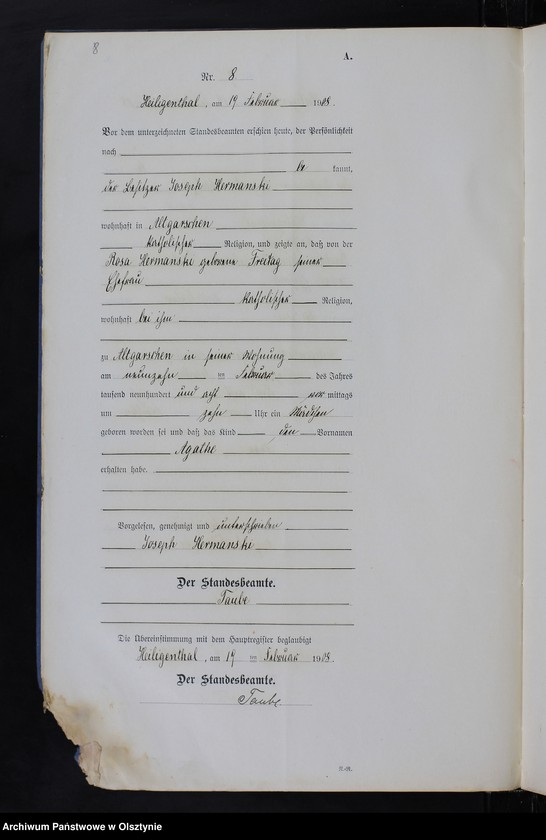 8
A.
Nr. 8
Heiligenthal, am 19 Februar 1908.
Vor dem unterzeichneten Standesbeamten erschien heute, der Persönlichkeit
nach
be kannt,
der Besitzer Joseph Hermanski
wohnhaft in Altgarschen
katholischer Religion, und zeigte an, daß von der
Rosa Hermanski geborene Freitag seiner
Ehefrau
katholischer Religion,
wohnhaft bei ihm
zu Altgarschen in seiner Wohnung
am neunzehn ten Februar des Jahres
tausend neunhundert und acht vor mittags
um zehn Uhr ein Mädchen
geboren worden sei und daß das Kind den Vornamen
Agathe
erhalten habe.
Vorgelesen, genehmigt und unterschrieben
Joseph Hermanski
Der Standesbeamte.
Taube
Die Übereinstimmung mit dem Hauptregister beglaubigt
Heiligenthal, am 19 ten Februar 1908.
Der Standesbeamte.
Taube
Archiwum Państwowe w Olsztynie